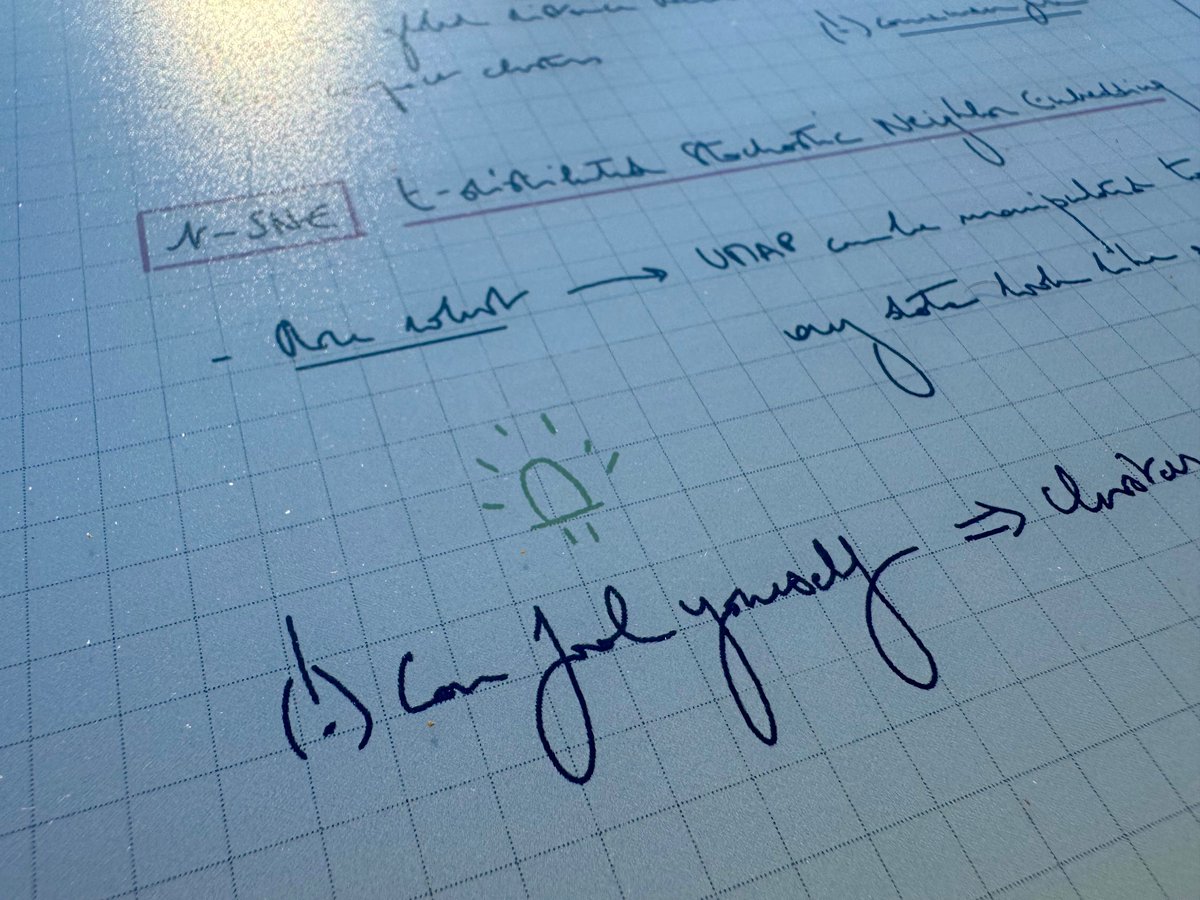 global distance
clusters
(!)
N-SNE t-distributed Stochastic Neighbor Embedding
- More robust → UMAP can be manipulated to
any data look like
(!) Can fool yourself ⇒ clusters